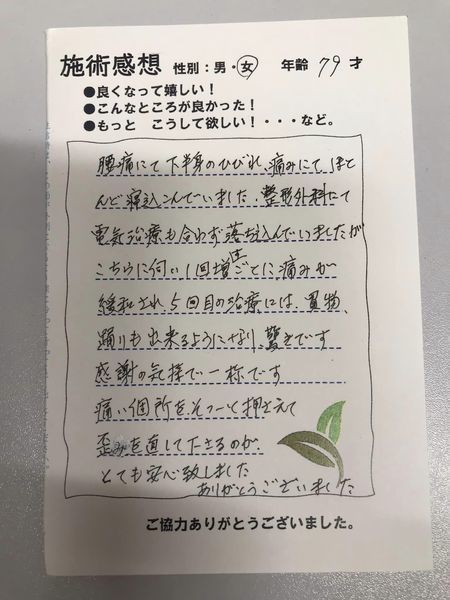 施術感想 性別：男・女 年齢 79 才
●良くなって嬉しい！
●こんなところが良かった！
●もっと こうして欲しい！・・・など。
腰痛にて下半身のひびれ、痛みにて、ほと
んど寝込んでいました。整形外科にて
電気治療も合わず落ち込んでいましたが
こちらに伺い、1回増すごとに、痛みが
緩和され、5回目の治療には、買物、
踊りも出来るようになり、驚きです
感謝の気持で一杯です
痛い個所をそーっと押さえて
歪みを直して下さるのが、
とても安心致しました
ありがとうございました
ご協力ありがとうございました。